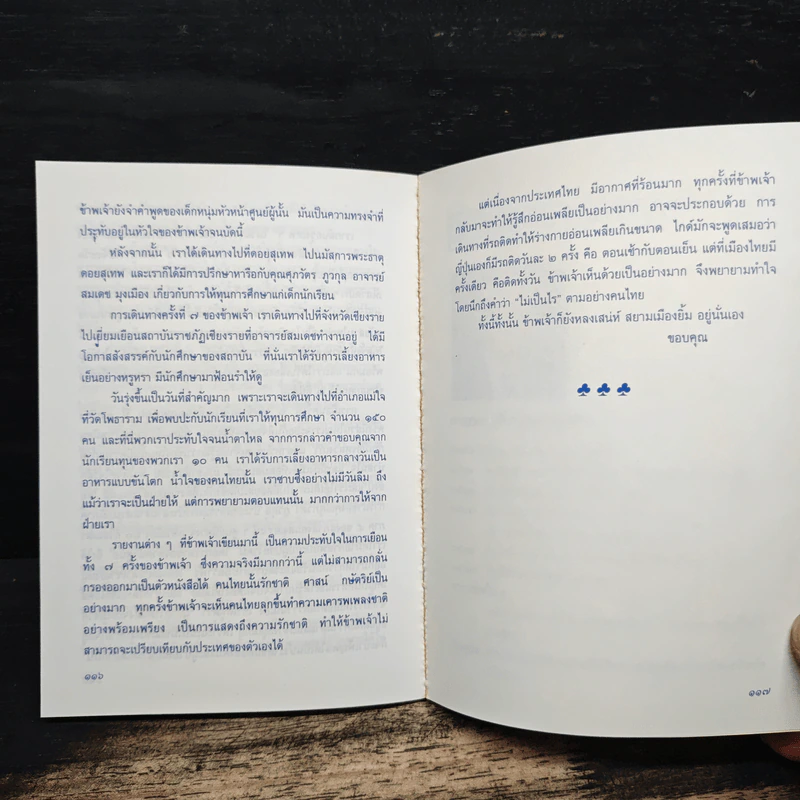 ข้าพเจ้ายังจำคำพูดของเด็กหนุ่มหัวหน้าศูนย์ผู้นั้น มันเป็นความทรงจำที่
ประทับอยู่ในหัวใจของข้าพเจ้าจนบัดนี้
หลังจากนั้น เราได้เดินทางไปที่ดอยสุเทพ ไปนมัสการพระธาตุ
ดอยสุเทพ และเราก็ได้มีการปรึกษาหารือกับคุณศุภวัตร ภูวกุล อาจารย์
สมเดช มุงเมือง เกี่ยวกับการให้ทุนการศึกษาแก่เด็กนักเรียน
การเดินทางครั้งที่ ๗ ของข้าพเจ้า เราเดินทางไปที่จังหวัดเชียงราย
ไปเยี่ยมเยือนสถาบันราชภัฏเชียงรายที่อาจารย์สมเดชทำงานอยู่ ได้มี
โอกาสสังสรรค์กับนักศึกษาของสถาบัน ที่นั่นเราได้รับการเลี้ยงอาหาร
เย็นอย่างหรูหรา มีนักศึกษามาฟ้อนรำให้ดู
วันรุ่งขึ้นเป็นวันที่สำคัญมาก เพราะเราจะเดินทางไปที่อำเภอแม่ใจ
ที่วัดโพธาราม เพื่อพบปะกับนักเรียนที่เราให้ทุนการศึกษา จำนวน ๑๕๐
คน และที่นี่พวกเราประทับใจจนน้ำตาไหล จากการกล่าวคำขอบคุณจาก
นักเรียนทุนของพวกเรา ๑๐ คน เราได้รับการเลี้ยงอาหารกลางวันเป็น
อาหารแบบขันโตก น้ำใจของคนไทยนั้น เราซาบซึ้งอย่างไม่มีวันลืม ถึง
แม้ว่าเราจะเป็นฝ่ายให้ แต่การพยายามตอบแทนนั้น มากกว่าการให้จาก
ฝ่ายเรา
รายงานต่าง ๆ ที่ข้าพเจ้าเขียนมานี้ เป็นความประทับใจในการเยือน
ทั้ง ๗ ครั้งของข้าพเจ้า ซึ่งความจริงมีมากกว่านี้ แต่ไม่สามารถกลั่น
กรองออกมาเป็นตัวหนังสือได้ คนไทยนั้นรักชาติ ศาสน์ กษัตริย์เป็น
อย่างมาก ทุกครั้งข้าพเจ้าจะเห็นคนไทยลุกขึ้นทำความเคารพเพลงชาติ
อย่างพร้อมเพรียง เป็นการแสดงถึงความรักชาติ ทำให้ข้าพเจ้าไม่
สามารถจะเปรียบเทียบกับประเทศของตัวเองได้
๑๑๖
แต่เนื่องจากประเทศไทย มีอากาศที่ร้อนมาก ทุกครั้งที่ข้าพเจ้า
กลับมาจะทำให้รู้สึกอ่อนเพลียเป็นอย่างมาก อาจจะประกอบด้วย การ
เดินทางที่รถติดทำให้ร่างกายอ่อนเพลียเกินขนาด ไกด์มักจะพูดเสมอว่า
ญี่ปุ่นเองก็มีรถติดวันละ ๒ ครั้ง คือ ตอนเช้ากับตอนเย็น แต่ที่เมืองไทยมี
ครั้งเดียว คือติดทั้งวัน ข้าพเจ้าเห็นด้วยเป็นอย่างมาก จึงพยายามทำใจ
โดยนึกถึงคำว่า “ไม่เป็นไร” ตามอย่างคนไทย
ทั้งนี้ทั้งนั้น ข้าพเจ้าก็ยังหลงเสน่ห์ สยามเมืองยิ้ม อยู่นั่นเอง
ขอบคุณ
๑๑๗